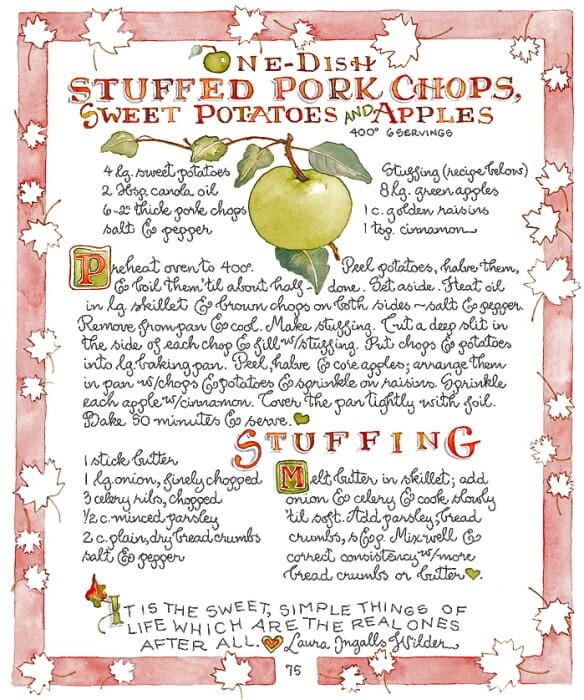 ONE-DISH
STUFFED PORK CHOPS,
SWEET POTATOES AND APPLES
400° 6 SERVINGS
4 lg. sweet potatoes
2 Tbsp. canola oil
6-2" thick pork chops
salt & pepper
Stuffing (recipe below)
8 lg. green apples
1 c. golden raisins
1 tsp. cinnamon
Preheat oven to 400°. Peel potatoes, halve them,
& boil them 'til about half-done. Set aside. Heat oil
in lg. skillet & brown chops on both sides ~ salt & pepper.
Remove from pan & cool. Make stuffing. Cut a deep slit in
the side of each chop & fill w/stuffing. Put chops & potatoes
into lg. baking pan. Peel, halve & core apples; arrange them
in pan w/chops & potatoes & sprinkle on raisins. Sprinkle
each apple w/cinnamon. Cover the pan tightly with foil.
Bake 50 minutes & serve.
STUFFING
1 stick butter
1 lg. onion, finely chopped
3 celery ribs, chopped
1/2 c. minced parsley
2 c. plain, dry bread crumbs
salt & pepper
Melt butter in skillet; add
onion & celery & cook slowly
'til soft. Add parsley, bread
crumbs, s & p. Mix well &
correct consistency w/more
bread crumbs or butter.
IT IS THE SWEET, SIMPLE THINGS OF
LIFE WHICH ARE THE REAL ONES
AFTER ALL. Laura Ingalls Wilder
75